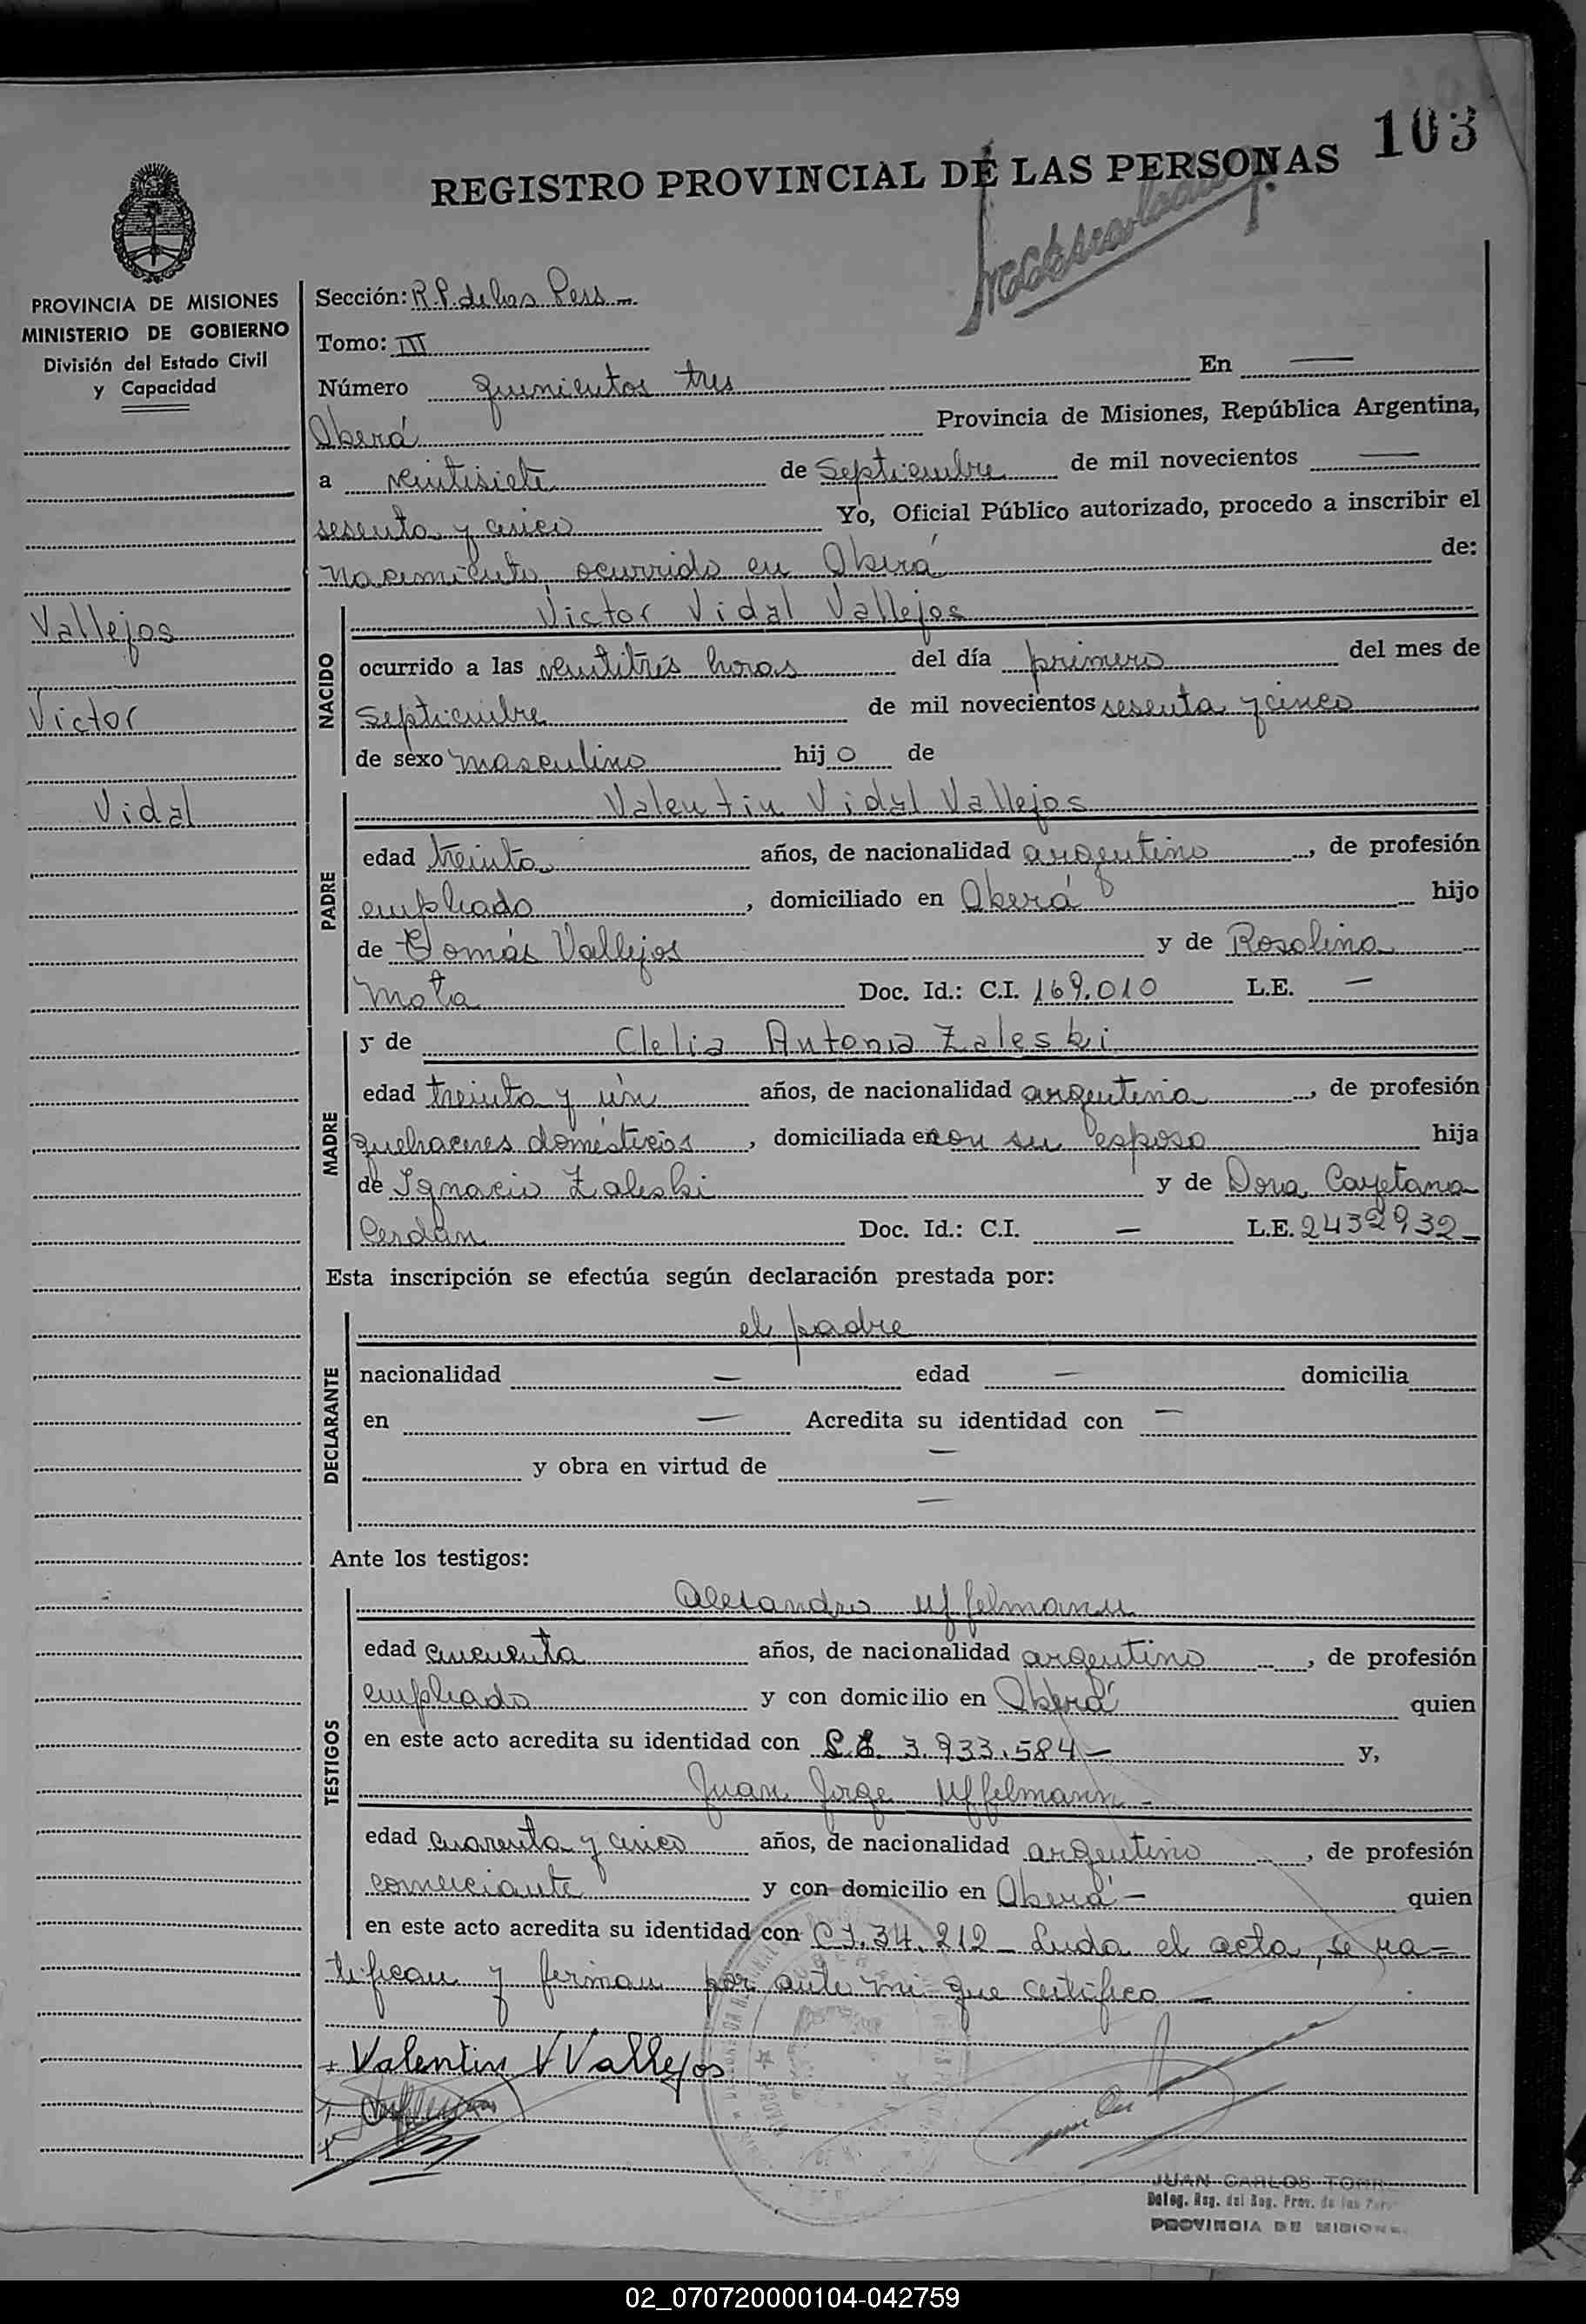 103
REGISTRO PROVINCIAL DE LAS PERSONAS
PROVINCIA DE MISIONES
MINISTERIO DE GOBIERNO
División del Estado Civil
y Capacidad
Vallejos
Victor
Vidal
Sección: R.P. de las Pers —
Tomo: III
Número quinientos tres En —
Oberá Provincia de Misiones, República Argentina,
a veintisiete de Septiembre de mil novecientos —
sesenta y cinco Yo, Oficial Público autorizado, procedo a inscribir el
nacimiento ocurrido en Oberá de:
NACIDO
Victor Vidal Vallejos
ocurrido a las veintitrés horas del día primero del mes de
Septiembre de mil novecientos sesenta y cinco
de sexo masculino hijo de
PADRE
Valentin Vidal Vallejos
edad treinta años, de nacionalidad argentino, de profesión
empleado, domiciliado en Oberá hijo
de Tomás Vallejos y de Rosalina
Mota Doc. Id.: C.I. 169.010 L.E. —
MADRE
y de Clelia Antonia Zaleski
edad treinta y ún años, de nacionalidad argentina, de profesión
quehaceres domésticos, domiciliada en con su esposo hija
de Ignacio Zaleski y de Dora Cayetana
Cerdán Doc. Id.: C.I. — L.E. 2432932 —
Esta inscripción se efectúa según declaración prestada por:
DECLARANTE
el padre
nacionalidad — edad — domicilia
en — Acredita su identidad con —
y obra en virtud de —
—
Ante los testigos:
TESTIGOS
Alesandro Uffelmann
edad cincuenta años, de nacionalidad argentino, de profesión
empleado y con domicilio en Oberá quien
en este acto acredita su identidad con L.E. 3.933.584 — y,
Juan Jorge Uffelmann —
edad cuarenta y cinco años, de nacionalidad argentino, de profesión
comerciante y con domicilio en Oberá — quien
en este acto acredita su identidad con C.I. 34.212 — Leida el acta, se ra-
tifican y firman por ante mi que certifico —
Valentin V Vallejos
JUAN CARLOS TORR
Deleg. Reg. del Reg. Prov. de las Pers
PROVINCIA DE MISIONE
02_070720000104-042759